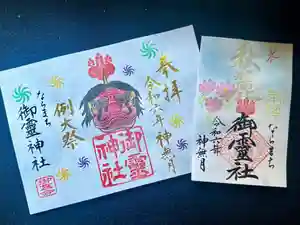 奉拝
令和六年神無月
例大祭
ならまち
御霊神社
御霊
神社
令和六年
神無月
ならまち
御霊社